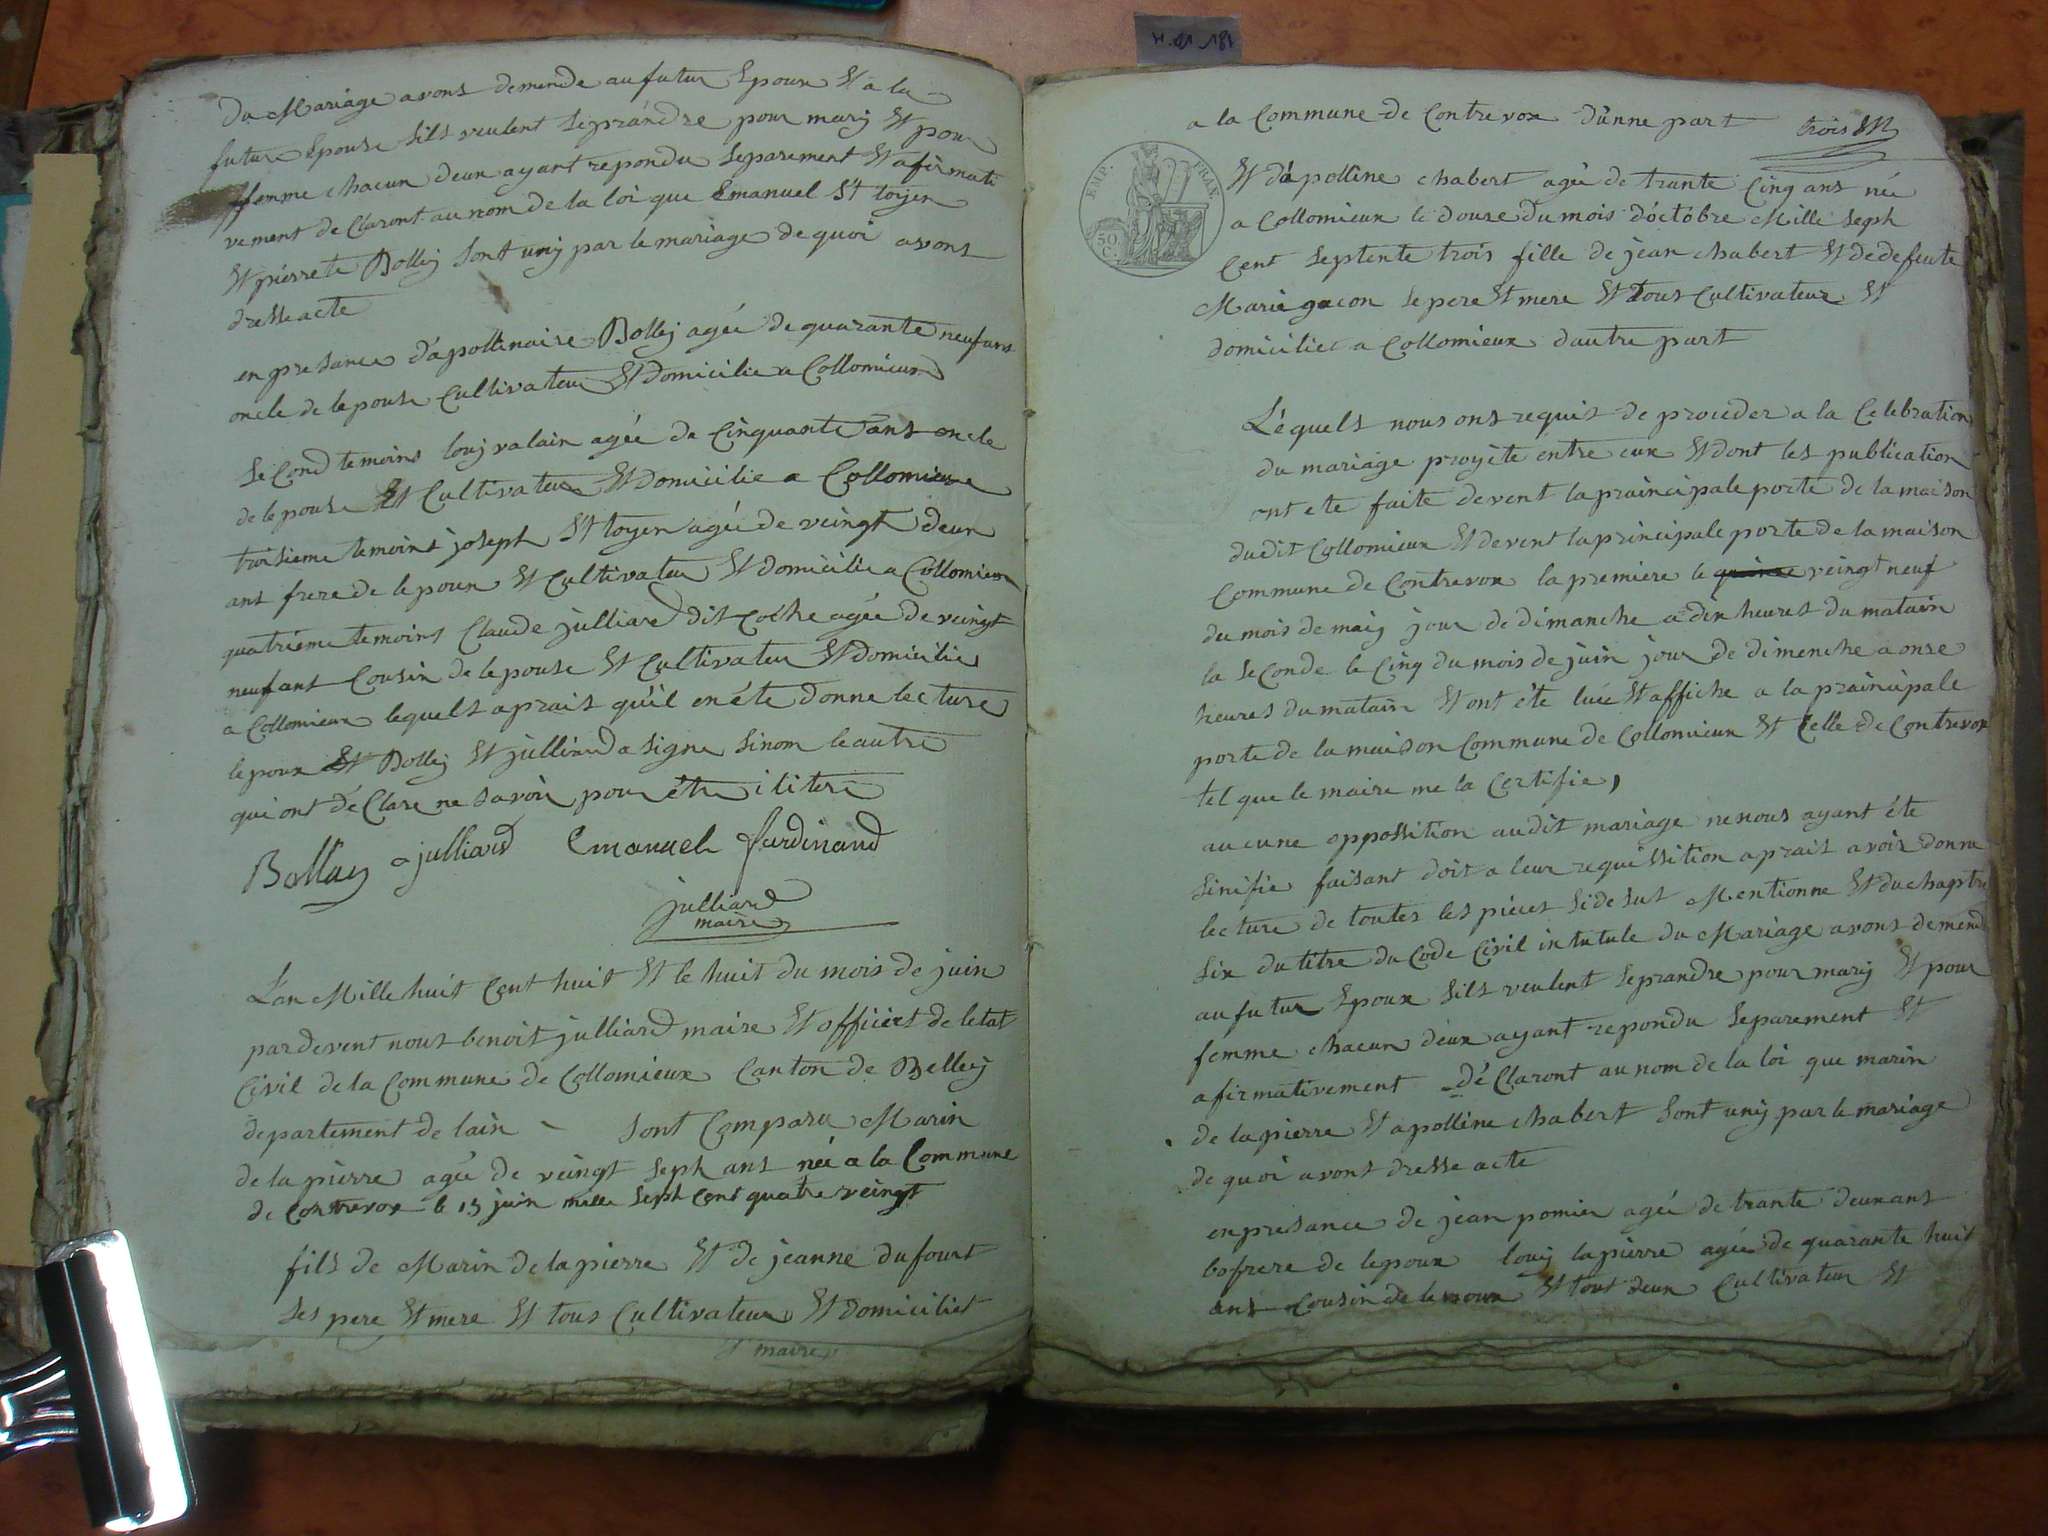 du Mariage avons demende au futur Epoux Et a la
future Epouse sils veulent se prandre pour mary Et pour
femme chacun deux ayant repondu separement Et afirmati
vement de Claront au nom de la loi que Emanuel St toyen
Et pierrete Bolley sont uniy par le mariage de quoi avons
dresse acte
en presance d'apollinaire Bolley agée de quarante neuf ans
oncle de lepouse Cultivateur Et Domicilie a Collomieux
second temoins louy valain agée de Cinquante ans oncle
de lepouse Et Cultivateur Et Domicilie a Collomieux
troisieme temoins joseph St toyen agée de veingt deux
ans frere de lepoux Et Cultivateur Et domicilie a Collomieux
quatrieme temoins Claude julliard dit Coche agée de veingt
neuf ans Cousin de lepouse Et Cultivateur Et Domicilie
a Collomieux lequels aprais qu'il en été donne lecture
lepoux Et Bolley Et julliard a signe sinom le autre
qui ont dé Clare ne savoir pour étre ilitere
Bolley a julliard Emanuel ferdinand
julliard
maire
L'an Mille huit Cent huit Et le huit du mois de juin
pardevent nous benoit julliard maire Et officiers de letat
Civil de la Commune de Collomieux Canton de Belley
departement de lain - sont Comparu Marin
de la pierre agée de veingt seph ans née a la Commune
de Contrevox le 15 juin mille seph Cent quatre veingt
fils de Marin de la pierre Et de jeanne dufourt
ses pere Et mere Et tous Cultivateur Et domiciliet
maire
a la Commune de Contrevox d'unne part
trois
EMP. FRAN.
50 C.
Et d'apolline chabert agée de trante Cinq ans née
a Collomieux le douse du mois d'octobre Mille seph
Cent septente trois fille de jean chabert Et de defeute
Marie gacon se pere Et mere Et tous Cultivateur Et
domiciliet a Collomieux d'autre part
Léquels nous ons requis de proceder a la Celebration
du mariage proyète entre eux Et dont les publication
ont ete faite devent la praincipale porte de la maison
dudit Collomieux Et devent la principale porte de la maison
Commune de Contrevox la premiere le quinze veingt neuf
du mois de maiy jour de dimanche a dix heures du matain
la seconde le Cinq du mois de juin jour de dimenche a onse
heures du matain Et ont été luée Et affiche a la praincipale
porte de la maison Commune de Collomieux Et Celle de Contrevox
tel que le maire me la Certifie,
aucune oppossition audit mariage ne nous ayant éte
sinifie faisant doit a leur requissition aprais avoir donne
lecture de toutes les pièces side sus Mentionne Et du chaptre
six du titre du Code Civil intutule du Mariage avons demende
au futur Epoux sils veulent se prandre pour mary Et pour
femme chacun deux ayant repondu separement Et
afirmativement dé Claront au nom de la loi que marin
de la pierre Et apolline chabert sont uniy par le mariage
de quoi avons dresse acte
en presance de jean pomier agée de trante deux ans
bofrere de lepoux louy lapierre agée de quarante huit
ans Cousin de lepoux Et tout deux Cultivateur Et